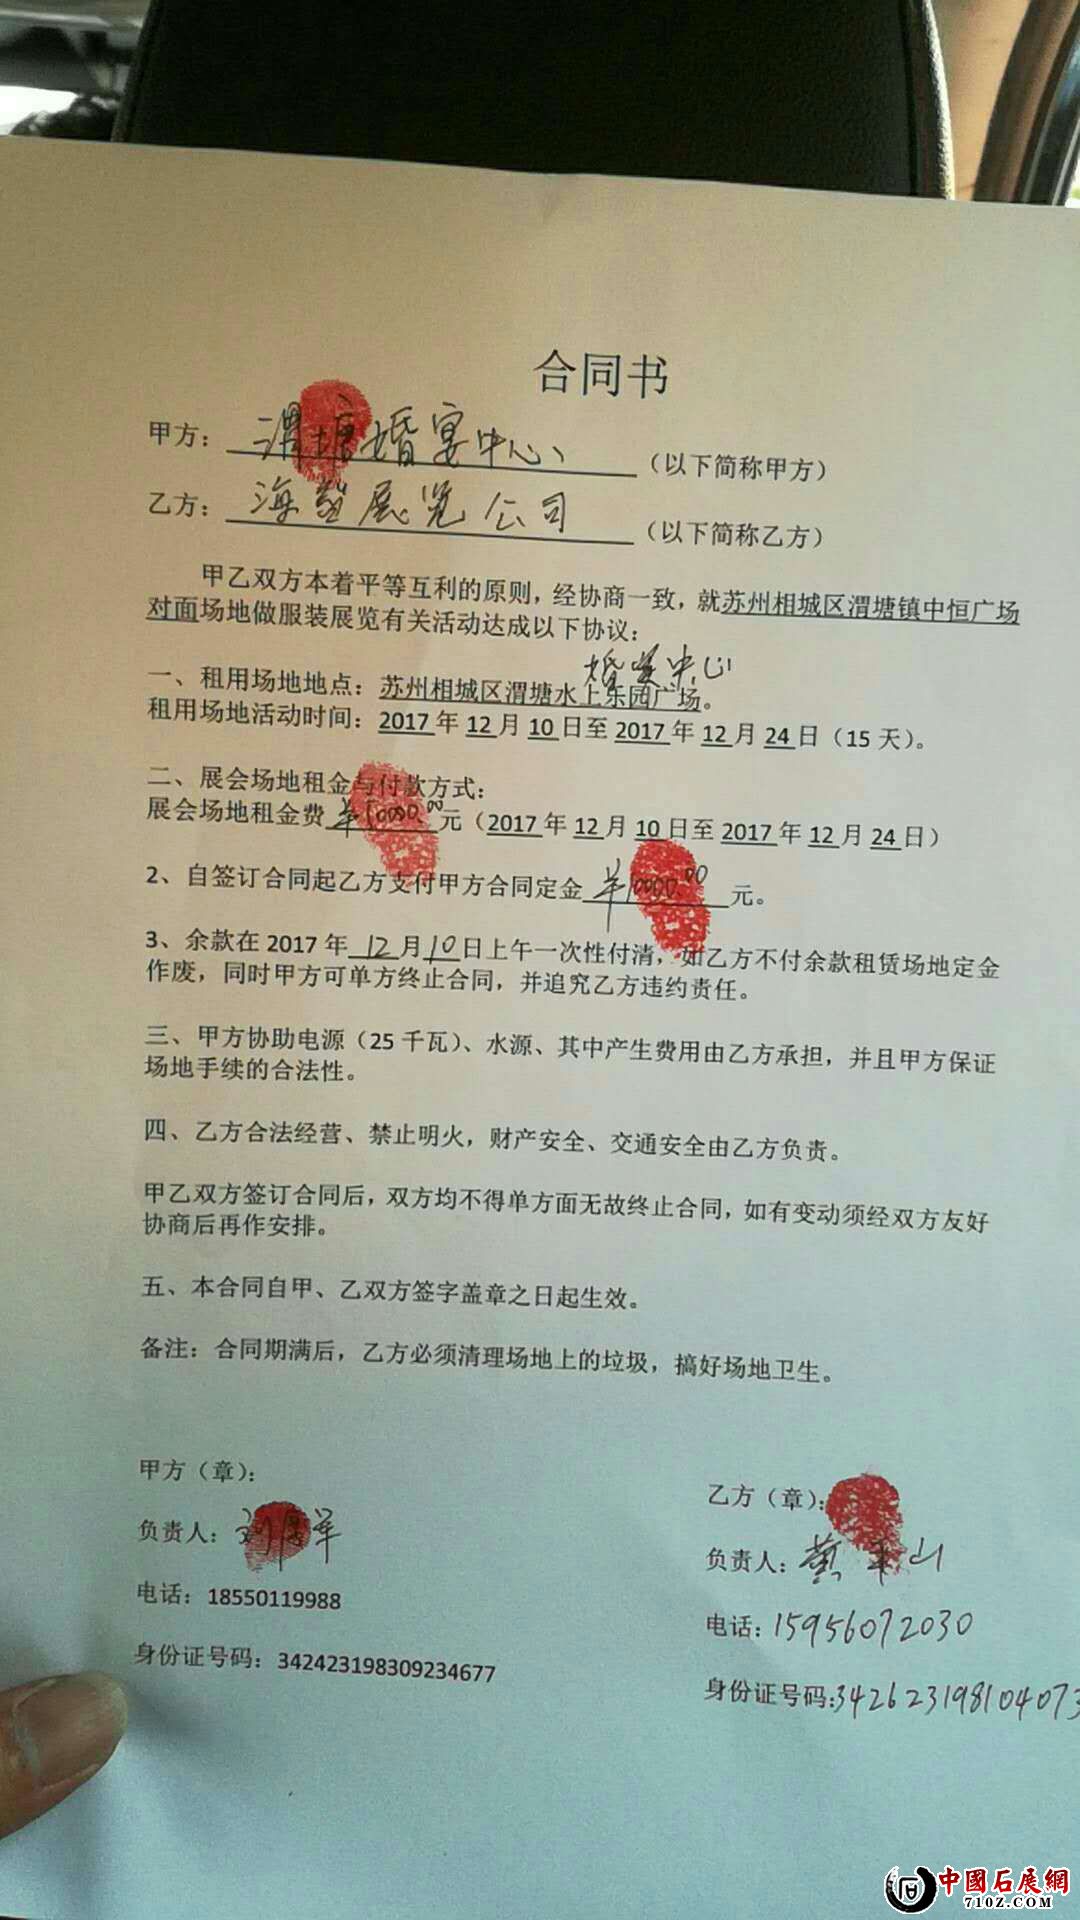 合同书
甲方：渭塘婚宴中心（以下简称甲方）
乙方：海 展览公司（以下简称乙方）
甲乙双方本着平等互利的原则，经协商一致，就苏州相城区渭塘镇中恒广场
对面场地做服装展览有关活动达成以下协议：
婚宴中心
一、租用场地地点：苏州相城区渭塘水上乐园广场。
租用场地活动时间：2017年12月10日至2017年12月24日（15天）。
二、展会场地租金与付款方式：
展会场地租金费¥10000.00元（2017年12月10日至2017年12月24日）
2、自签订合同起乙方支付甲方合同定金¥10000.00元。
3、余款在2017年12月10日上午一次性付清，如乙方不付余款租赁场地定金
作废，同时甲方可单方终止合同，并追究乙方违约责任。
三、甲方协助电源（25千瓦）、水源、其中产生费用由乙方承担，并且甲方保证
场地手续的合法性。
四、乙方合法经营、禁止明火，财产安全、交通安全由乙方负责。
甲乙双方签订合同后，双方均不得单方面无故终止合同，如有变动须经双方友好
协商后再作安排。
五、本合同自甲、乙双方签字盖章之日起生效。
备注：合同期满后，乙方必须清理场地上的垃圾，搞好场地卫生。
甲方（章）：
负责人：刘 军
电话：18550119988
身份证号码：342423198309234677
乙方（章）：
负责人：黄 山
电话：15956072030
身份证号码：342623198104073
中國石展網
710Z.COM